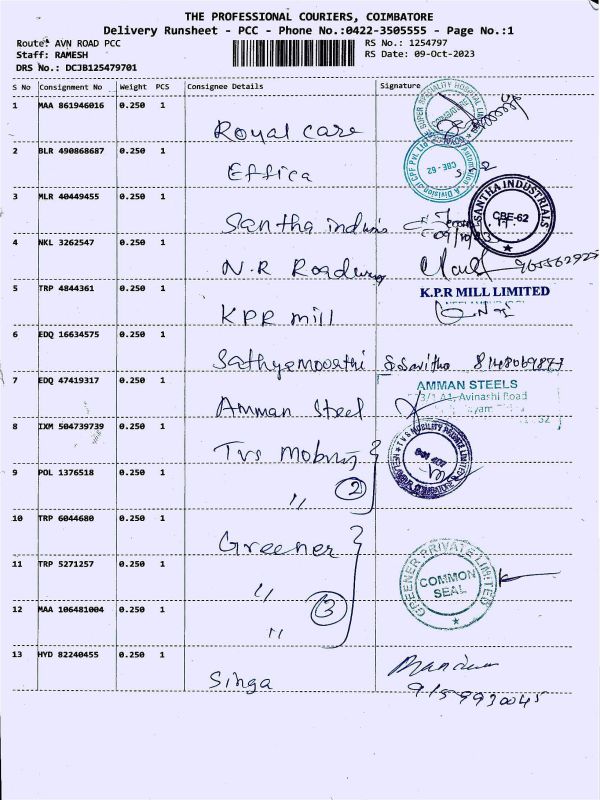 THE PROFESSIONAL COURIERS, COIMBATORE
Delivery Runsheet - PCC - Phone No.:0422-3505555 - Page No.:1
Route: AVN ROAD PCC
Staff: RAMESH
DRS No.: DCJB125479701
RS No.: 1254797
RS Date: 09-Oct-2023
S No Consignment No Weight PCS Consignee Details Signature
1 MAA 861946016 0.250 1
Royal care
2 BLR 490868687 0.250 1
Effica
CBE-62
3 MLR 40449455 0.250 1
Santha
SANTHA INDUSTRIALS
CBE-62
4 NKL 3262547 0.250 1
N.R Roadway
5 TRP 4844361 0.250 1
K.P.R MILL LIMITED
KPR mill
6 EDQ 16634575 0.250 1
Sathyamoorthi S Savitha
7 EDQ 47419317 0.250 1
AMMAN STEELS
Avinashi Road
Amman Steel
8 IXM 504739739 0.250 1
TVS
9 POL 1376518 0.250 1
" 2
10 TRP 6044680 0.250 1
Greener
GREENER PRIVATE LIMITED
COMMON
SEAL
11 TRP 5271257 0.250 1
"
12 MAA 106481004 0.250 1
3
"
13 HYD 82240455 0.250 1
Singa
9159930045